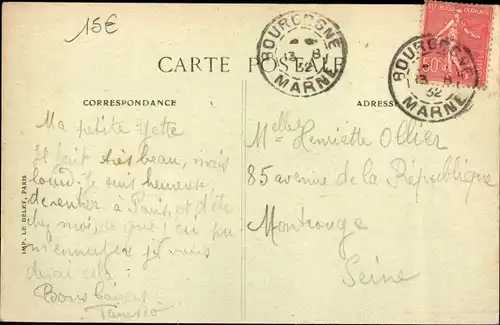 15€
BOURGOGNE
13 8
32
MARNE
REPUBLIQUE FRANÇAISE
50c
BOURGOGNE
13 8
32
MARNE
CARTE POSTALE
CORRESPONDANCE
ADRESSE
Ma petite Yette
Il fait très beau, mais
lourd. Je suis heureuse
de rentrer à Paris, et d'être
chez moi, ce que
m'ennuyer je vous
dirai cela.
Bons baisers
Melle Henriette Ollier
85 avenue de la République
Montrouge
Seine
IMP. LE DELEY, PARIS